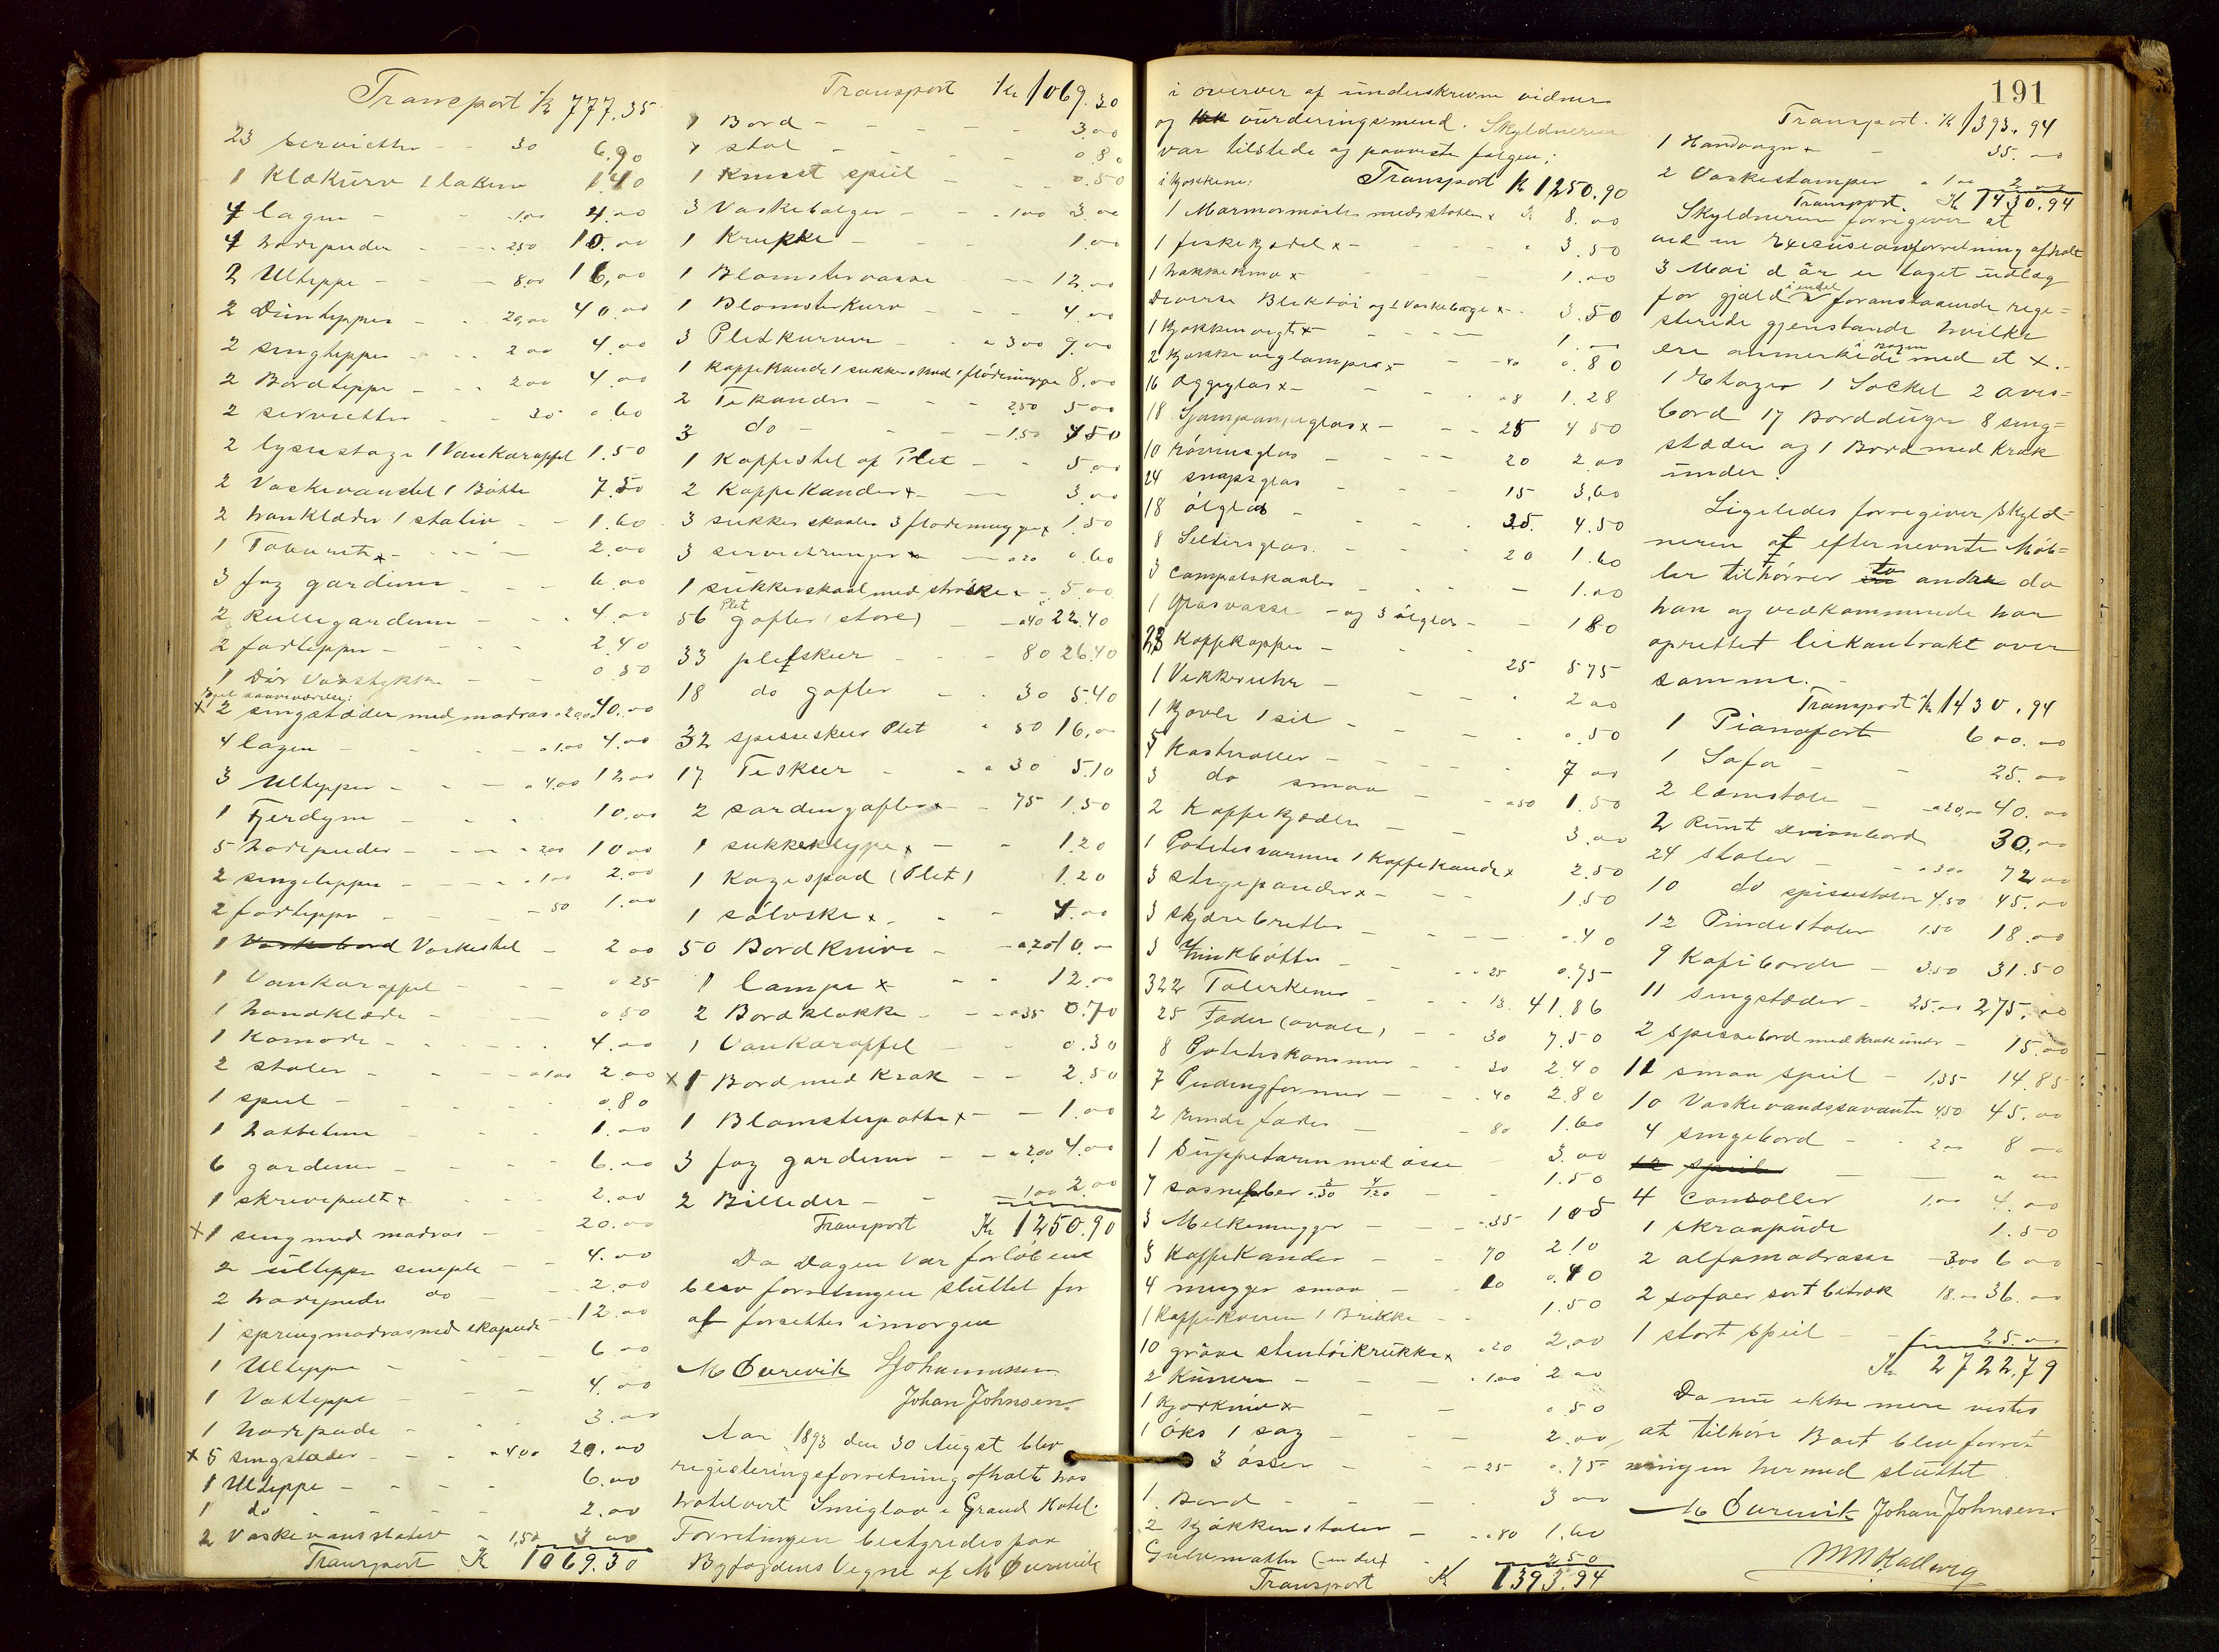 Transport Kr 777.35
23 servietter - - 30 6.90
1 Klækurv 1 laken 1.40
4 lagen - - 1.00 4.00
4 hodepuder - - 2.50 10.00
2 Ulteppe - - 8.00 16.00
2 Düntepper - - 20.00 40.00
2 sengtepper - - 2 00 4.00
2 Bordteppe - - 2 00 4.00
2 servietter - - 30 0.60
2 lysestage 1 Vankaraffel 1.50
2 Vaskevanstel 1 Bötte 7.50
2 hanklæder 1 stativ - 1.60
1 Toburett x - - - 2.00
3 fag gardiner - - 6.00
2 Rullegardiner - - 4.00
2 forteppe - - - 2.40
1 Dör - - 0.50
x 2 sengstæder med madras a 20.00 40.00
4 lagen - - - a 1.00 4.00
3 Ultepper - - - a 4.00 12.00
1 Fjerdyne - - - 10.00
5 hodepuder - - - a 2.00 10 00
2 sengetepper - - - a 1.00 2.00
2 forteppe - - - 50 1.00
1 Vaskebord Vaskestel - 2 00
1 Vankaraffel - - - 0 25
1 handklæde - - - 0 50
1 Komode - - - 4.00
2 stoler - - - a 1.00 2.00
1 speil - - - 0.80
1 - - - 1.00
6 gardiner - - - 6.00
1 skrivepult x - - - 2.00
x 1 seng med madras - 20.00
2 ülteppe simple - 4.00
2 hodepude do - 2.00
1 springmadras med skapude - 12.00
1 Ulteppe - - 6.00
1 Vatteppe - - 4.00
1 hodepude - - 3.00
x 5 sengstæder - - a 4.00 20.00
1 Ulteppe - - - 6.00
1 do - - - 2.00
2 Vaskevansstativ - 1,50 3 00
Transport Kr 1069.30
Transport Kr 1069.30
1 Bord - - - 3.00
1 stol - - - 0.80
1 Knust speil - - - 0.50
3 Vaskebalger - - - 1 00 3.00
1 Krukke - - - 1.00
1 Blomstervasse - - 12.00
1 Blomsterkurv - - - 4.00
3 Pletkurver - - a 3 00 9.00
1 kaffekande 1 sukkerskaal 1 flödemugge 8.00
2 Tekander - - - 2.50 5 00
3 do - - - 1.50 4 50
1 Kaffestel af Plet - - 5.00
2 Kaffekander x - - 3.00
3 sukkerskaaler 3 flødemugger x 1.50
3 servietringer x - a 20 0.60
1 sükkerskaal med ströske x - 5.00
56 Plet gafler (store) - a 40 22.40
33 pletskeer - - - 80 26.40
18 do gafler - - 30 5.40
32 spiseskeer Plet a 50 16.00
17 Teskeer - - a 30 5.10
2 sardingafler x - 75 1.50
1 sukkerklype x - - 1.20
1 Kagespad (Plet) 1.20
1 sølvske x - - 4.00
50 Bordknive - - a 20 10.00
1 lampe x - - 12.00
2 Bordklokke - - a 35 0.70
1 Vankaraffel - - 0.30
x 1 Bord med Krak - - 2.50
1 Blomsterpotte x - - 1.00
3 fag gardiner - - a 2.00 4.00
2 Billeder - - 1.00 2.00
Transport Kr 1250.90
Da Dagen var forlöben
blev forretningen sluttet for
at forsettes imorgen
M Öurevik SJohannessen
Johan Johnsen.
Aar 1893 den 30 Augst blev
registeringsforretning afholt hos
hotelvert Smiglav i Grand Hotel.
Forretningen bestyredes paa
Byfogdens Vegne af M Öurevik
i overver af underskrevne vidner
og vürderingsmend. Skyldneren
var tilstede og paaviste følgen;
i kjøkkene: Transport Kr 1250.90
1 Marmormorter med støter x Kr 8.00
1 fiskekjedel x - - - 3.50
1 hakkekniv x 1.00
Diverse Bliktöi og 1 Vaskebalge x - 3.50
1 Kjøkkenvegt x - - - 1.-
2 kjøkkenveglamper x - - 40 0.80
16 Æggeglas x - - - a 8 1.28
18 Sjampanjeglas x - - - 25 4 50
10 rövinsglas - - - 20 2.00
24 snapsglas - - 15 3,60
18 ölglas - - - 25. 4.50
8 Seltersglas. - - - 20 1.60
3 Compotskaaler - - - 1.00
1 Glasvasse - og 3 ölglas - - 1 80
23 Kaffekopper - - 25 5 75
1 Vekkeruhr - - - 2 00
1 Kjøvle 1 sil - - - 0.50
7 Kasteroller - - - 7 00
3 do smaa - - a 50 1.50
2 Kaffekjedler - - 3.00
1 Potetesvarmer 1 Kaffekande x 2.50
3 stegepander x - - 1.50
3 skjærebretter - - - 0.40
3 zinkbötter - - - 25 0.75
322 Talerkener - - 13. 41.86
25 Fader (ovale) - - 30 7.50
8 Potetiskommer - - 30 2.40
7 Pudingformer - - 40 2.80
2 runde fader - - 80 1.60
1 Süppetarin med össe 3.00
7 - - 1.50
3 Melkemugger - - - 35 1 05
3 Kaffekander - - 70 2.10
4 mugger smaa - - 10 0.40
1 Kaffekvern 1 Brikke - - 1.50
10 gröve stentöikrukker x a 20 2,00
2 - - - 1.00 2 00
1 Kjødkniv x - - 0.50
1 öks 1 sag - - - 2.00
3 össer - - 25 0.75
1 Bord - - - 3 00
2 Kjökkenstoler - - a 80 1.60
Gulvmatter (en del) 2 50
Transport Kr 1393.94
191
Transport. Kr 1393.94
1 Handvogn x - - 35.00
2 Vaskestamper a 1 00 2 00
Transport. Kr 1430.94
Skyldneren forregiver at
ved en Execusionsforretning afholt
3 Mai d år er taget udlæg
for gjæld i endel foranstaaende rege-
sterede gjenstande hvilke
ere anmerkede i Bogen med et x.-
1 Etager 1 Sockel 2 avis-
bord 17 Bordduger 8 seng-
stæder og 1 Bord med Krak
under.
Ligeledes forregiver skyld-
neren at efternevnte Möb-
ler tilhörrer to andre da
han og vedkommende har
oprettet leikontrakt over
samme.-
Transport Kr 1430.94
1 Pianofort 600.00
1 Sofa - - 25.00
2 lænstole - - a 20,00 40.00
2 Runt 30,00
24 stoler - - a 3 00 72 00
10 do spisestoler 4.50 45.00
12 Pindestoler 1.50 18.00
9 Kafeborde - 3.50 31.50
11 sengstæder - 25.00 275.00
2 spissebord med krak under - 15.00
11 smaa speil - 1.35 14.85
10 Vaskevandsservanter 4.50 45.00
4 sengebord - - 2 00 8 00
12 speile
4 Consoller 1.00 4.00
1 skraapude 1.50
2 alfamadrasse - 3.00 6 00
2 sofaer sort betræk 18.00 36.00
1 stort speil - - 25.00
Kr 2722.79
Da nu ikke mere vistes
at tilhöre Boet blev forret-
ningen hermed sluttet.
M Öurevik Johan Johnsen
MNKallevig